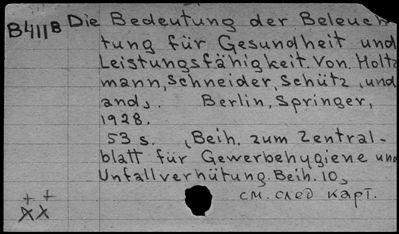 B411B Die Bedeutung der Beleuch-
tung für Gesundheit und
Leistungsfähigkeit. Von. Holtz-
mann, Schneider, Schütz, und
and. Berlin, Springer,
1928.
53 s. (Beih. zum Zentral-
blatt für Gewerbehygiene und
Unfallverhütung. Beih. 10)
см. след карт.